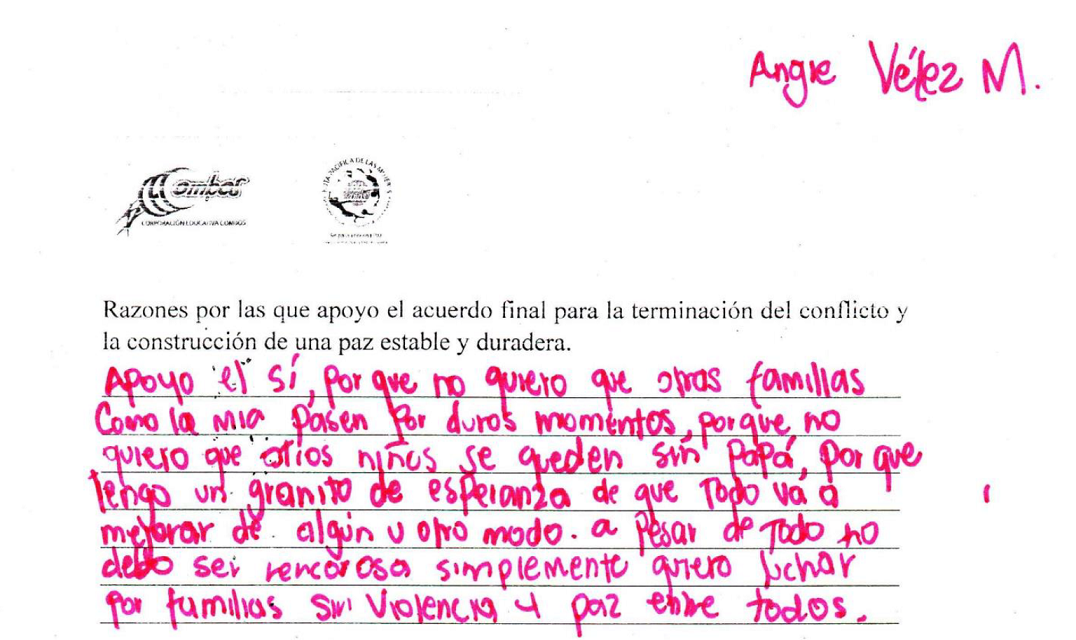 Angie Vélez M.
Combos
CORPORACIÓN EDUCATIVA COMBOS
RUTA PACÍFICA DE LAS MUJERES
Razones por las que apoyo el acuerdo final para la terminación del conflicto y
la construcción de una paz estable y duradera.
Apoyo el sí, por que no quiero que otras familias
Como la mia pasen por duros momentos, porque no
quiero que otros niños se queden sin Papá, por que
tengo un granito de esperanza de que Todo vá a
mejorar de algún u otro modo. a pesar de Todo no
debo ser rencorosa simplemente quiero luchar
por familias sin violencia y paz entre todos.